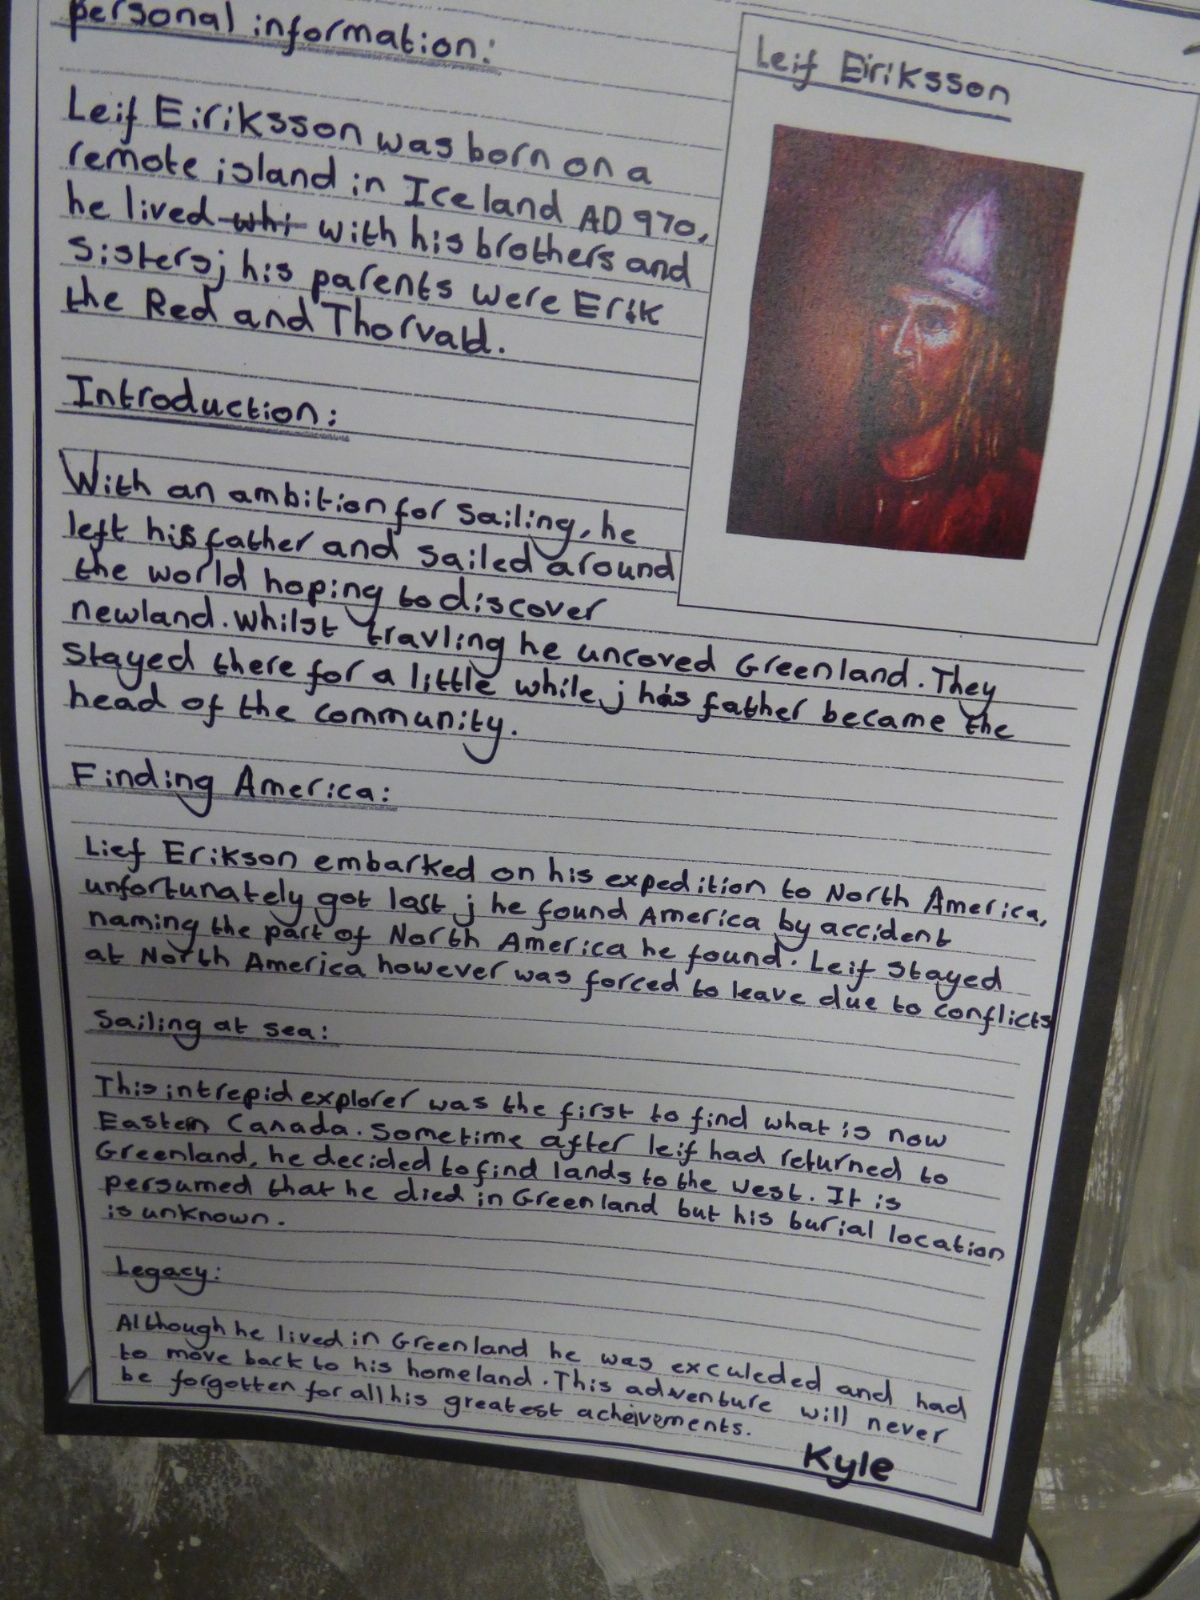 personal information:
Leif Eiriksson
Leif Eiriksson was born on a
remote island in Iceland AD 970,
he lived whi with his brothers and
sisters; his parents were Erik
the Red and Thorvald.
Introduction:
With an ambition for sailing, he
left his father and sailed around
the world hoping to discover
newland. Whilst travling he uncoved Greenland. They
stayed there for a little while; his father became the
head of the community.
Finding America:
Lief Erikson embarked on his expedition to North America,
unfortunately got last ; he found America by accident
naming the part of North America he found. Leif stayed
at North America however was forced to leave due to conflicts
Sailing at sea:
This intrepid explorer was the first to find what is now
Eastern Canada. Sometime after leif had returned to
Greenland, he decided to find lands to the west. It is
persumed that he died in Greenland but his burial location
is unknown.
Legacy:
Although he lived in Greenland he was exculeded and had
to move back to his homeland. This adventure will never
be forgotten for all his greatest acheivements.
Kyle